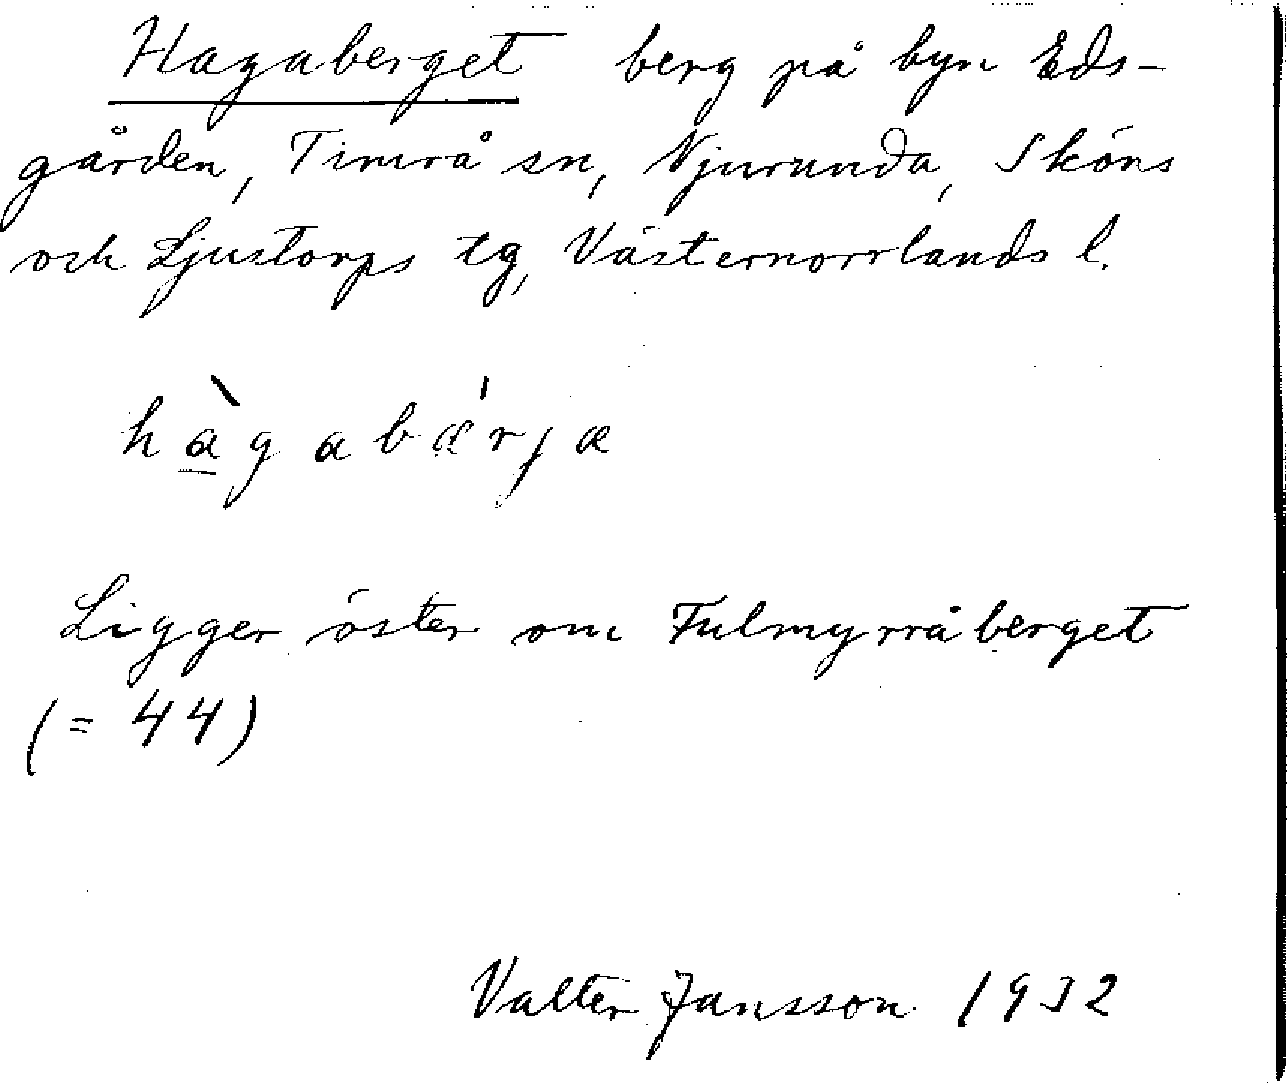 Hagaberget berg på byn Eds-
gården, Timrå sn, Njurunda, Sköns
och Ljustorps tg, Västernorrlands l.
hàgabǽrjæ
Ligger öster om Fulmyrråberget
(= 44)
Valter Jansson 1932